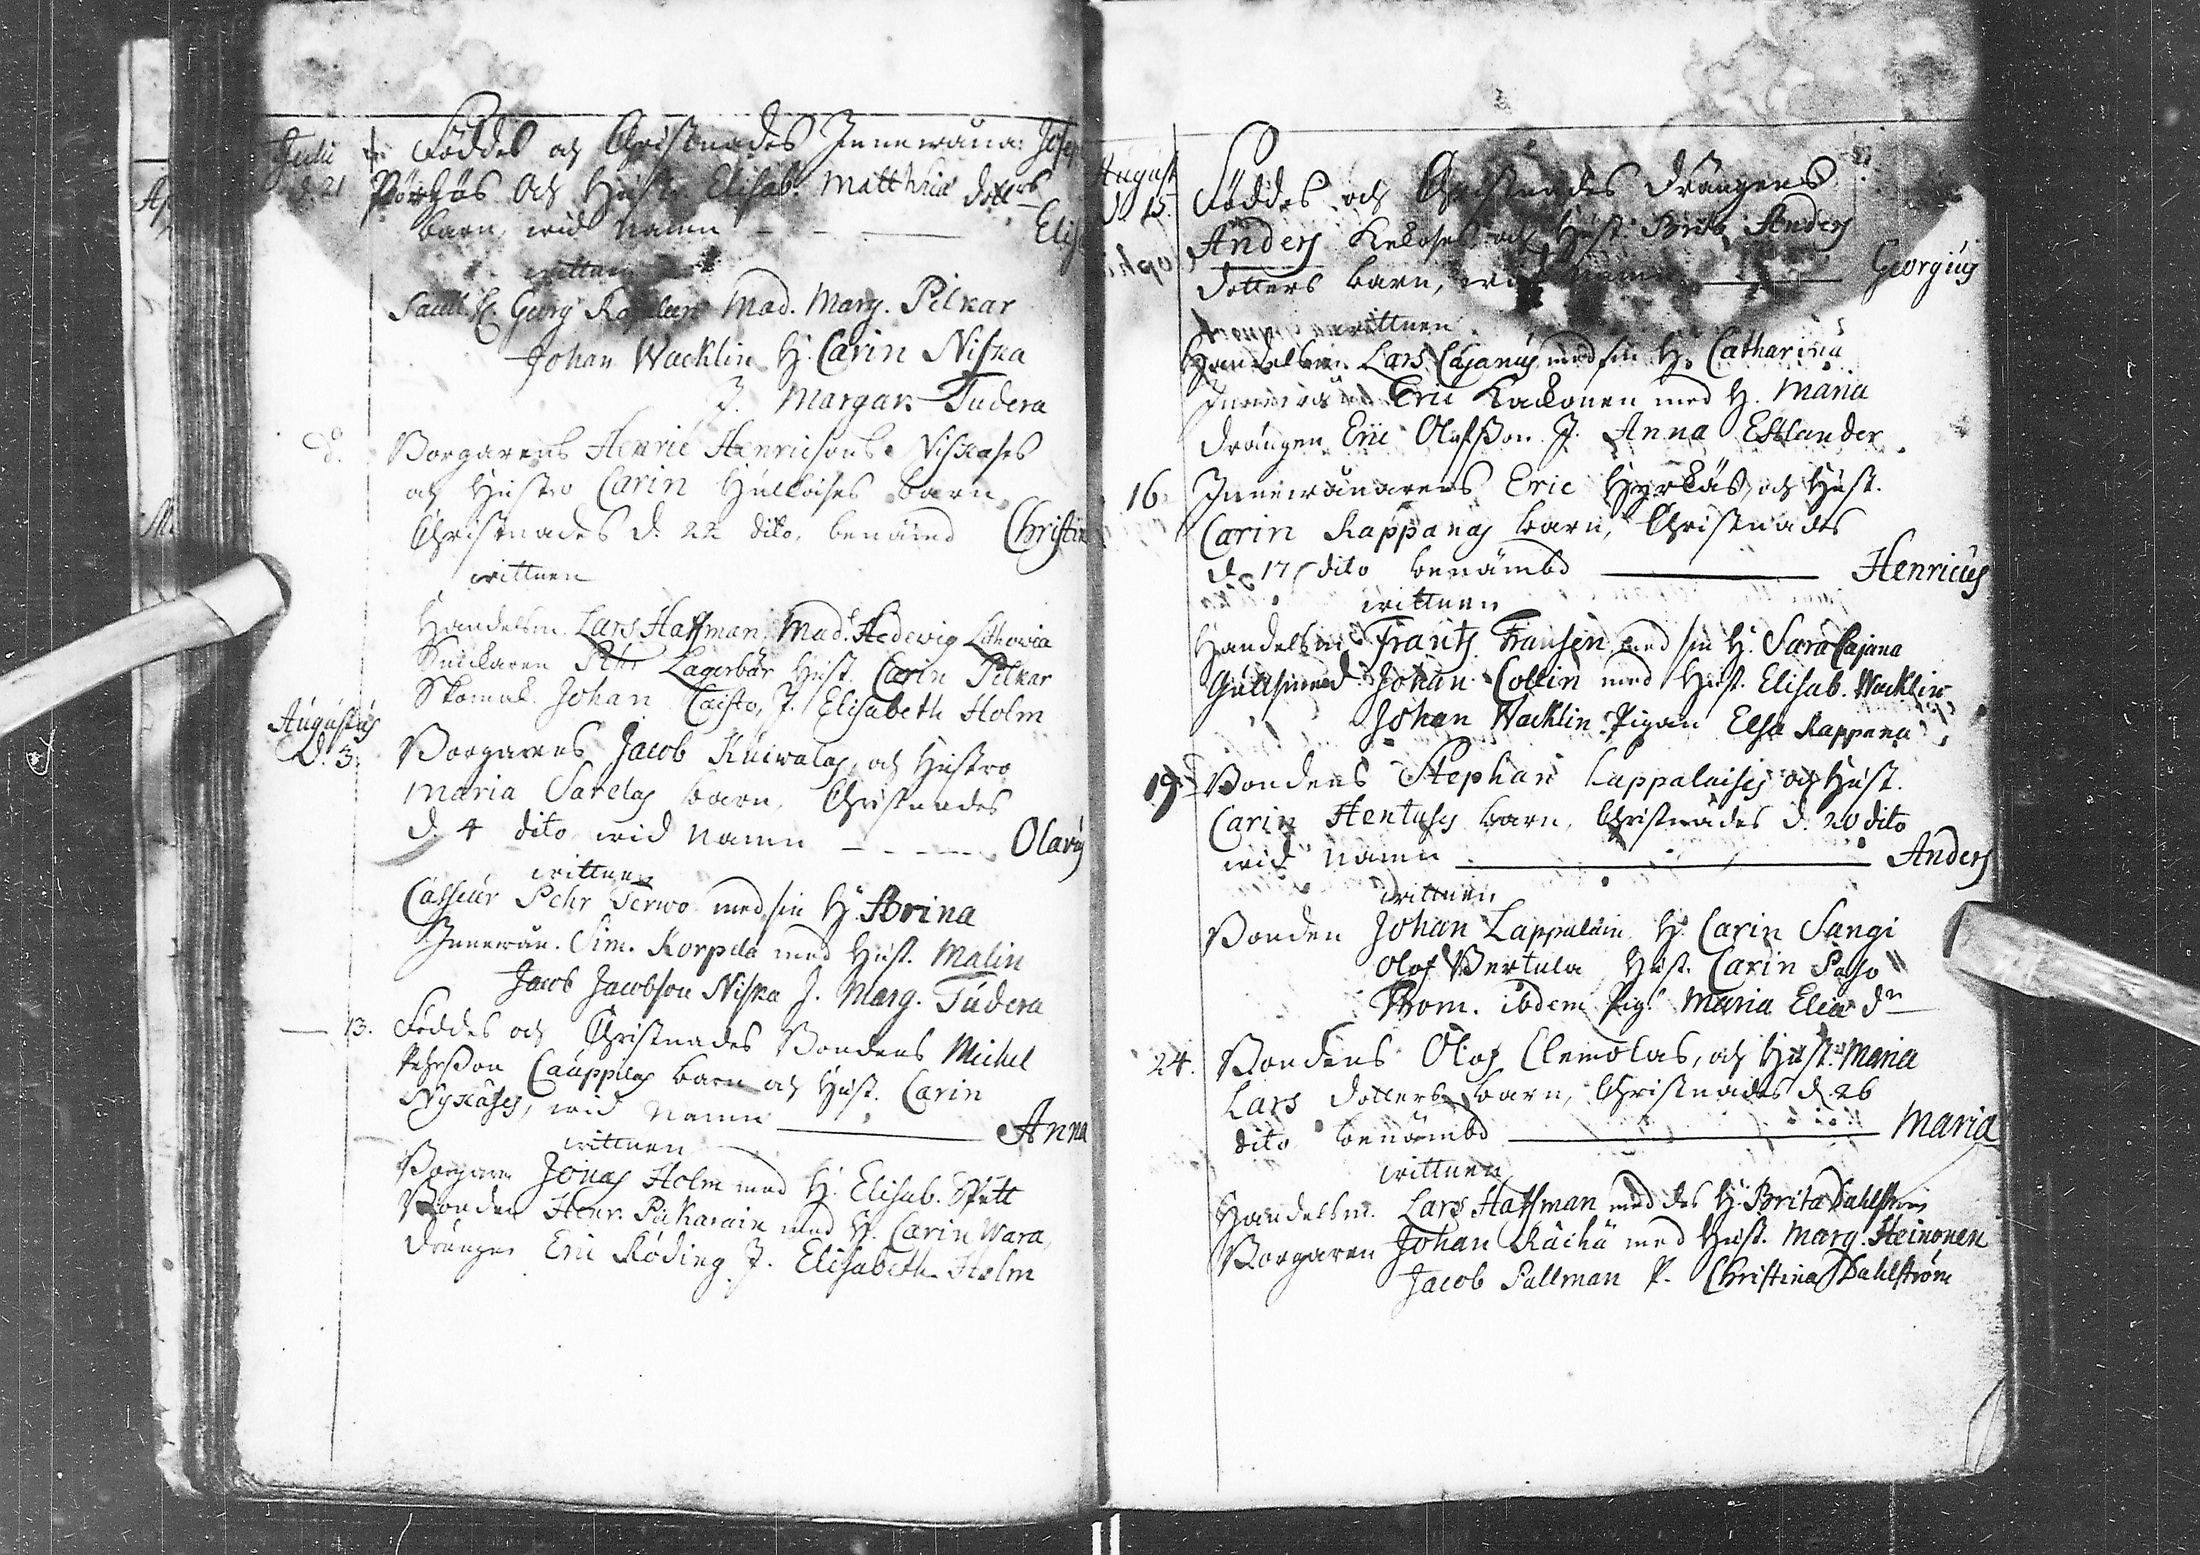 Julii Föddes och Christnades Innewåna: Josep
d. 21 och Hust. Elisab. Matthiæ dotters
barn, wid namn - - Elis
wittnen
Georg Mad. Marg. Pilkar
Johan Wacklin H. Carin Niska
J. Margar. Tudera
d. Borgarens Henric Henricsons Niskases
och Hustro Carin Hulkoises barn
Christnades d. 22 dito, benämd Christin
wittnen
Handelsm. Lars Haffman, Mad. Hedewig Lithovia
Snickaren Pehr Lagerbär Hust. Carin Pilkar
Skomak. Johan Caisto, J. Elisabeth Holm
Augustus
D. 3. Borgarens Jacob Kuiwalas, och Hustro
Maria Sarelas barn, Christnades
d. 4 dito wid namn - - - Olavus
wittnen
Casseur Pehr Terwo med sin H. Brina
Innewån. Sim. Korpela med Hust. Malin
Jacob Jacobson Niska J. Marg. Tudera
— 13. Föddes och Christnades Bondens Michel
Pehrsson Cauppilas barn och Hust. Carin
Nykäses, wid namn — Anna
wittnen
Borgaren Jonas Holm med H. Elisab. Spett
Bonden Henr. Pikarain med H. Carin Wara,
Drängen Eric Röding J. Elisabeth Holm
August
d. 15. Föddes och Christnades Drängens
Anders Kekoses och Hust. Brita Anders
dotters barn, wid namn — Georgius
wittnen
Handelsm. Lars Cajanus med sin H. Catharina
Eric Kackonen med H. Maria
Drängen Eric Olofsson J. Anna Estlander
16. Innewånarens Eric Hyrkäs, och Hust.
Carin Rappanas barn, Christnades
d. 17 dito benämbd — Henricus
wittnen
Handelsm. Frants Fransen med sin H. Sara Cajana
Gullsmed. Johan Collin med Hust. Elisab. Wacklin
Johan Wacklin Pigan Elsa Rappana
19. Bondens Stephan Lappalaises och Hust.
Carin Hentuses barn, Christnades d. 20 dito
wid namn — Anders
wittnen
Bonden Johan Lappalain H. Carin Sangi
Olof Bertula Hust. Carin
Thom. ibdem Pig. Maria Eliæ dn
24. Bondens Olof Clemolas, och Hust. Maria
Lars dotters barn, Christnades d. 26
dito benämbd — Maria
wittnen
Handelsm. Lars Haffman med des H. Brita Dahlström
Borgaren Johan Räihä med Hust. Marg. Heinonen
Jacob Pallman P. Christina Dahlström